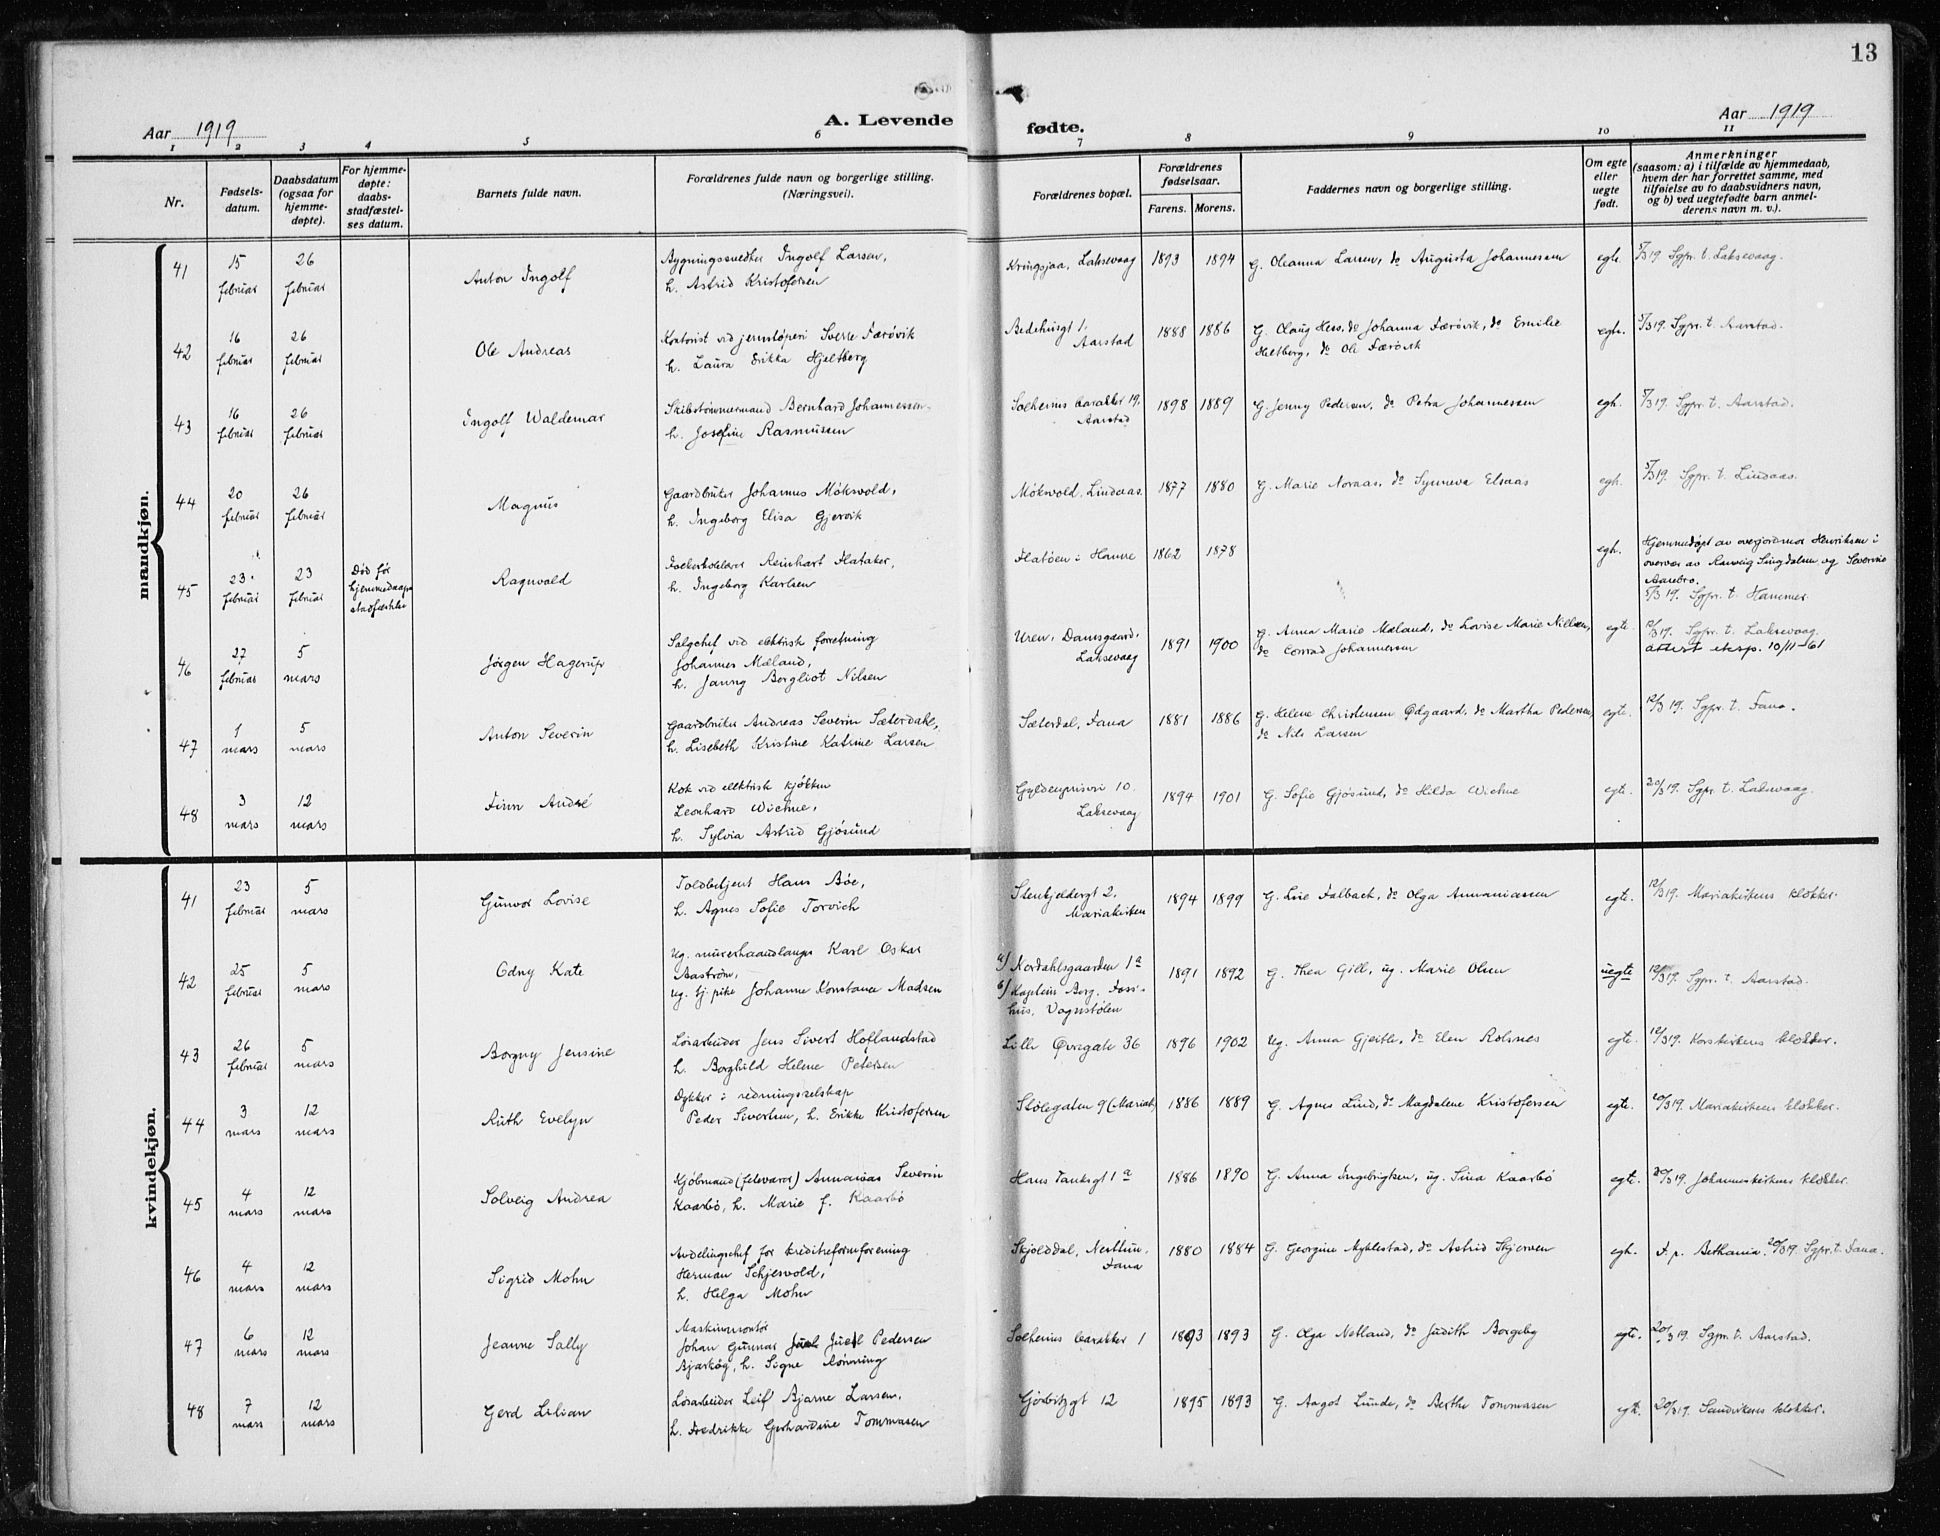 13
Aar 1919
A. Levende fødte.
Aar 1919
1 2 3 4 5 6 7 8 9 10 11
Nr.
Fødsels-
datum.
Daabsdatum
(ogsaa for
hjemme-
døpte).
For hjemme-
døpte:
daabs-
stadfæstel-
ses datum.
Barnets fulde navn.
Forældrenes fulde navn og borgerlige stilling.
(Næringsvei).
Forældrenes bopæl.
Forældrenes
fødselsaar.
Farens. Morens.
Faddernes navn og borgerlige stilling.
Om egte
eller
uegte
født.
Anmerkninger
(saasom: a) i tilfælde av hjemmedaab,
hvem der har forrettet samme, med
tilføielse av to daabsvidners navn,
og b) ved uegtefødte barn anmel-
derens navn m. v.).
mandkjøn.
41
15 februar
26 februar
Anton Ingolf
Bygningssnedker Ingolf Larsen,
h. Astrid Kristofersen
Kringsjaa, Laksevaag
1893 1894
G. Oleanna Larsen, do Augusta Johannesen
egte.
5/3 19. Sgpr. t. Laksevaag.
42
16 februar
26 februar
Ole Andreas
Kontorist vid jernstøperi Sverre Færøvik
h. Laura Erikka Hjeltberg
Bedehusgt 1,
Aarstad
1888 1886
G. Olaug Hess, do Johanna Færøvik, do Emilie
Heltberg, do Ole Færøvik
egte.
5/3 19. Sgpr. t. Aarstad.
43
16 februar
26 februar
Ingolf Waldemar
Skibstømmermand Bernhard Johannessen,
h. Josefine Rasmussen
Solheims barakker 19,
Aarstad
1898 1889
G. Jenny Pedersen, do Petra Johannessen
egte.
5/3 19. Sgpr. t. Aarstad.
44
20 februar
26 februar
Magnus
Gaardbruker Johannes Møkvold,
h. Ingeborg Elisa Gjervik
Møkvold, Lindaas
1877 1880
G. Marie Noraas, do Synneva Elsaas
egte.
5/3 19. Sgpr. t. Lindaas.
45
23 februar
23 februar
Død før
hjemmedaaps
stadfæstelse
Ragnvald
Reinhart Flataker,
h. Ingeborg Karlsen
Flatøen i Hamre
1862 1878
egte.
Hjemmedøpt av overjordmor Henriksen i
overvær av Ranveig Lingdalsen og Severine
Aarebro.
5/3 19. Sgpr. t. Hammer.
46
27 februar
5 mars
Jørgen Hagerup
Salgchef vid elektrisk forretning
Johannes Mæland,
h. Janny Bergliot Nilsen
Uren, Damsgaard,
Laksevaag
1891 1900
G. Anna Marie Mæland, do Lovise Marie Nilsen,
do Conrad Johannessen
egte.
12/3 19. Sgpr. t. Laksevaag.
attest eksp. 10/11-61
47
1 mars
5 mars
Anton Severin
Gaardbruker Andreas Severin Sæterdal,
h. Lisebeth Kristine Katrine Larsen
Sæterdal, Fana
1881 1886
G. Helene Christensen Ødgaard, do Martha Pedersen,
do Nils Larsen
egte.
12/3 19. Sgpr. t. Fana.
48
3 mars
12 mars
Finn André
Kok vid elektrisk kjøkken
Leonhard Wichne,
h. Sylvia Astrid Gjøsund
Gyldenprisvei 10.
Laksevaag
1894 1901
G. Sofie Gjøsund, do Hilda Wichne
egte.
20/3 19. Sgpr. t. Laksevaag.
kvindekjøn.
41
23 februar
5 mars
Gunvor Lovise
Toldbetjent Hans Bøe,
h. Agnes Sofie Torvich
Stenkjeldergt 2,
Mariakirken
1894 1899
G. Lise Falbach, do Olga Annaniassen
egte.
12/3 19. Mariakirkens klokker.
42
25 februar
5 mars
Odny Kate
Ug. murerhaandlanger Karl Oskar
Aastrøm,
ug. tj. pike Johanne Konstance Madsen
a) Kordahlsgaarden 1a
b) Kaptein Berg, Foss-
hus, Vognstølen
1891 1892
G. Thea Gill, ug. Marie Olsen
uegte
12/3 19. Sgpr. t. Aarstad.
43
26 februar
5 mars
Borgny Jensine
Løsarbeider Jens Sivert Hoflandstad
h. Borghild Helene Petersen
Lille Øvregate 36
1896 1902
Ug. Anna Gjeitle, do Elen Rolsnes
egte.
12/3 19. Korskirkens klokker.
44
3 mars
12 mars
Ruth Evelyn
Dykker i redningsselskap
Peder Sivertsen, h. Erikke Kristofersen
Stølegaten 9 (Mariak)
1886 1889
G. Agnes Lind, do Magdalene Kristofersen
egte.
20/3 19. Mariakirkens klokker.
45
4 mars
12 mars
Solveig Andrea
Kjøbmand (fetevarer) Annanias Severin
Kaarbø, h. Marie f. Kaarbø
Hans Tanksgt 1a
1886 1890
G. Anna Ingebrigtsen, ug. Sina Kaarbø
egte.
20/3 19. Johanneskirkens klokker.
46
4 mars
12 mars
Sigrid Mohn
Avdelingschef for kreditreformforening
Herman Schjesvold,
h. Helga Mohn
Skjolddal, Nesttun,
Fana
1880 1884
G. Georgine Myklestad, do Astrid Skjerven
egte.
F. p. Bethania. 20/3 19. Sgpr. t. Fana.
47
6 mars
12 mars
Jeanne Sally
Maskinmontør
Johan Gunnar Juel Pedersen
Bjarkøy, h. Signe Rønning
Solheims barakker 1
1893 1893
G. Olga Netland, do Judith Borgeby
egte.
20/3 19. Sgpr. t. Aarstad.
48
7 mars
12 mars
Gerd Lilian
Løsarbeider Leif Bjarne Larsen,
h. Fredrikke Gerhardine Tommasen
Gørbitzgt 12
1895 1893
G. Aagot Lunde, do Berthe Tommassen
egte.
20/3 19. Sandvikens klokker.